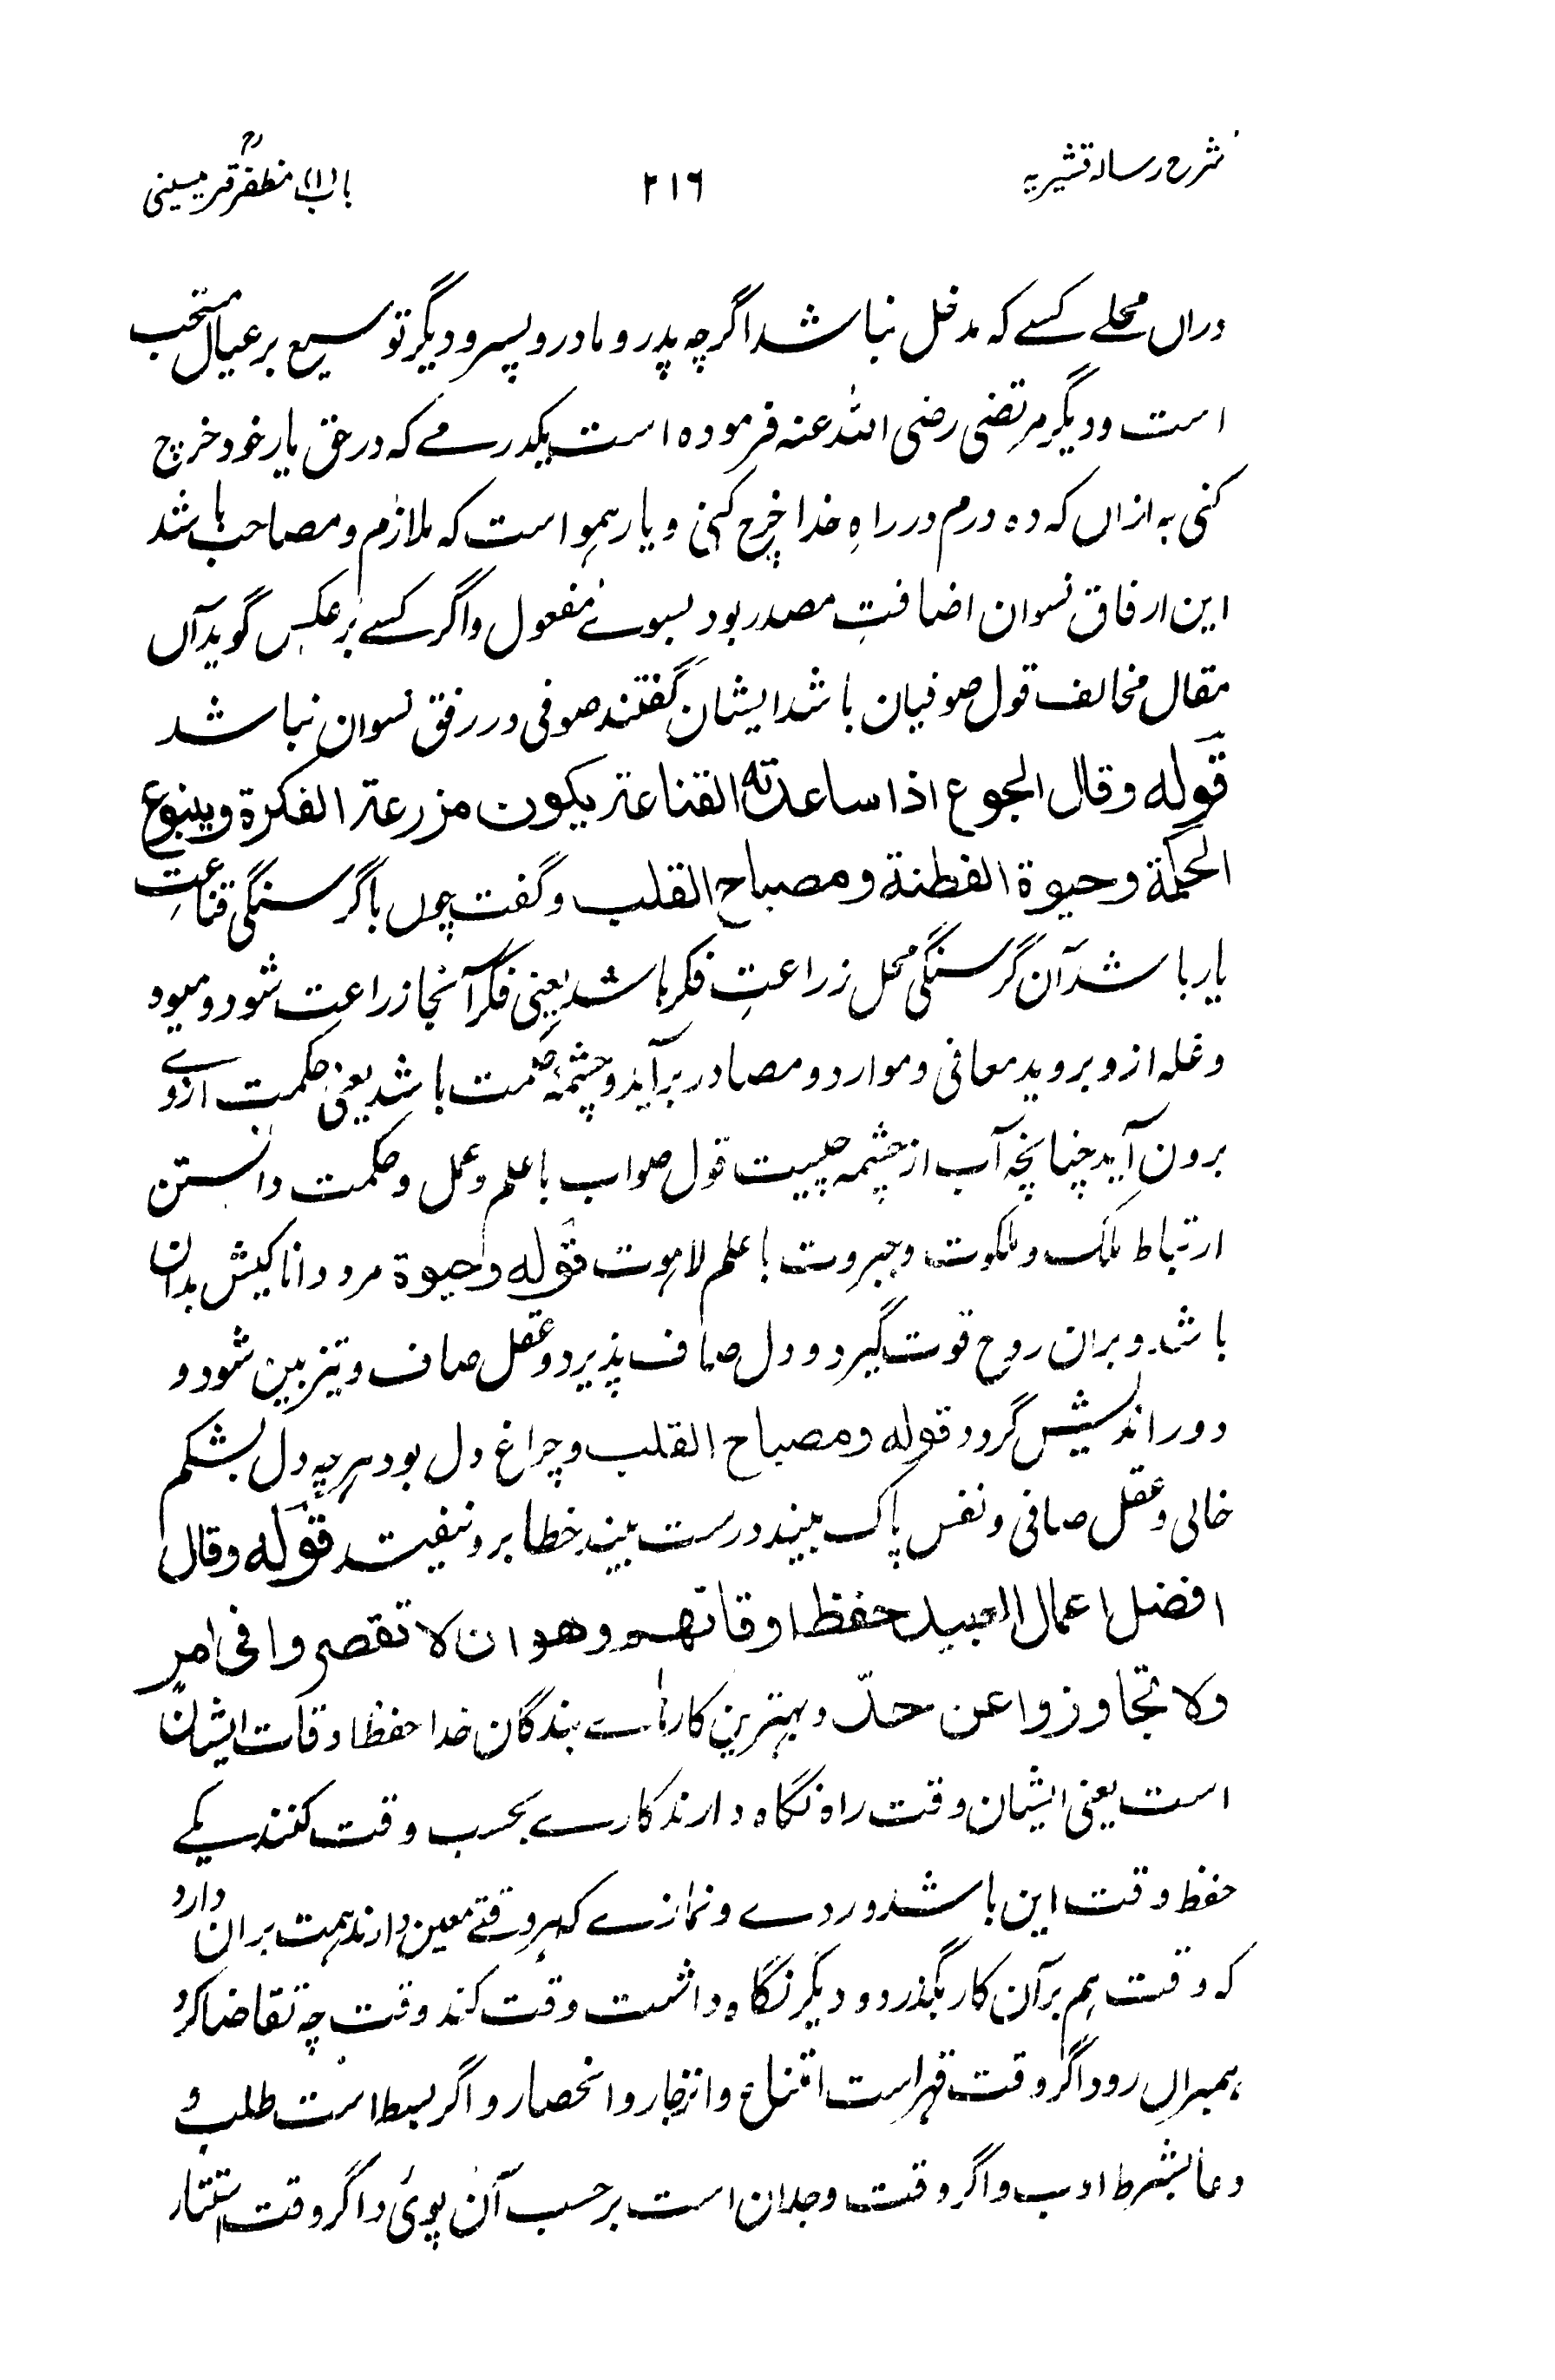 شرح رسالہ قشیریہ
۲۱۶
باب (۱) مظفر قرمیسینیؒ
دراں محلے کسے کہ مدخل نباشد اگرچہ پدر و مادر و پسر و دیگر توسیع بر عیال مستحب
است و دیگر مرتضی رضی اللہ عنہ فرمودہ است یکدرمے کہ در حق یار خود خرچ
کنی بہ ازاں کہ دہ درم در راہِ خدا خرچ کنی و یار ہمو است کہ ملازم و مصاحب باشد
این ارفاق نسوان اضافتِ مصدر بود بسوئے مفعول و اگر کسے بر عکس گوید آں
مقال مخالف قول صوفیان باشد ایشان گفتند صوفی در رفق نسوان نباشد
قوله وقال الجوع اذا ساعدته القناعة يكون مزرعة الفكرة وينبوع
الحكمة وحيوة الفطنة ومصباح القلب و گفت چوں با گرسنگی قناعتِ
یار باشد آن گرسنگی محل زراعتِ فکر باشد یعنی فکر آنجا زراعت شود و میود
و غلہ ازو بروید معانی و موارد و مصادر برآید و چشمۂ حکمت باشد یعنی حکمت ازوے
برون آید چنانچہ آب از چشمہ چیست قول صواب با علم و عمل و حکمت دانستن
ارتباط ملک و ملکوت و جبروت با علم لاہوت قوله وحيوة مرد دانا کیش بدان
باشد و بران روح قوت گیرد و دل صاف پذیرد و عقل صاف و تیز بین شود و
دور اندیشس گردد قوله ومصباح القلب و چراغ دل بود ہرچہ دل بشکم
خالی و عقل صافی و نفس پاک بیند درست بیند خطا برو نیفیتد قوله وقال
افضل اعمال العبيد حفظ اوقاتهم وهو ان لا تقصروا فى امرٍ
ولا تجاوزوا عن حدّ و بہترین کارہاے بندگان خدا حفظ اوقات ایشان
است یعنی ایشان وقت راہ نگاہ دارند کارے بحسب وقت کنند یکے
حفظ وقت این باشد وردے و نمازے کہ ہر وقتے معین دارند ہمت بران دارد
کہ وقت ہم بر آن کار بگذرد و دیگر نگاہ داشت وقت کند وقت چہ تقاضا کرد
ہمبراں رود اگر وقت قہر است امتناع و انزجار و انحصار و اگر بسط است طلب و
دعا بشرط ادب و اگر وقت وجدان است بر حسب آن پوئ و اگر وقت استتار